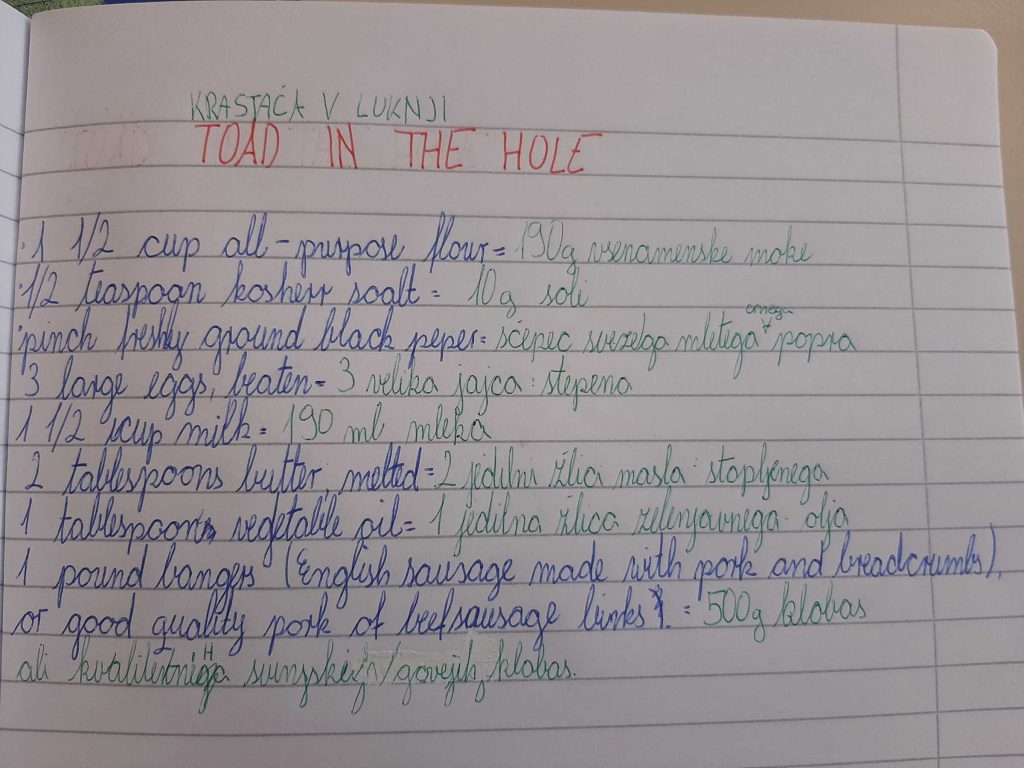 KRASTAČA V LUKNJI
TOAD IN THE HOLE
· 1 1/2 cup all-purpose flour = 190g vsenamenske moke
· 1/2 teaspoon kosherr soalt = 10g soli
· pinch freshly ground black peper = sčepec svezega mletega črnega popra
3 large eggs, beaten = 3 velika jajca : stepena
1 1/2 cup milk = 190 ml mleka
2 tablespoons butter, melted = 2 jedilni žlica masla : stopljenega
1 tablespoon vegetable oil = 1 jedilna žlica zelenjavnega olja
1 pound bangers (English sausage made with pork and breadcrumbs),
or good quality pork of beef sausage links. = 500g klobas
ali kvalitetnih svinjskih/govejih klobas.